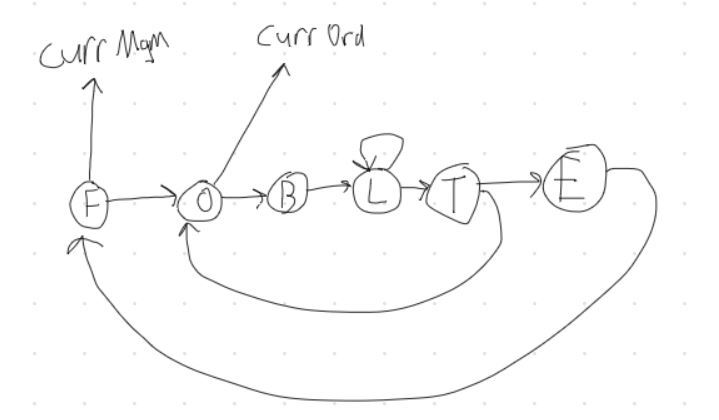 Curr Mgm
Curr Ord
F O B L T E